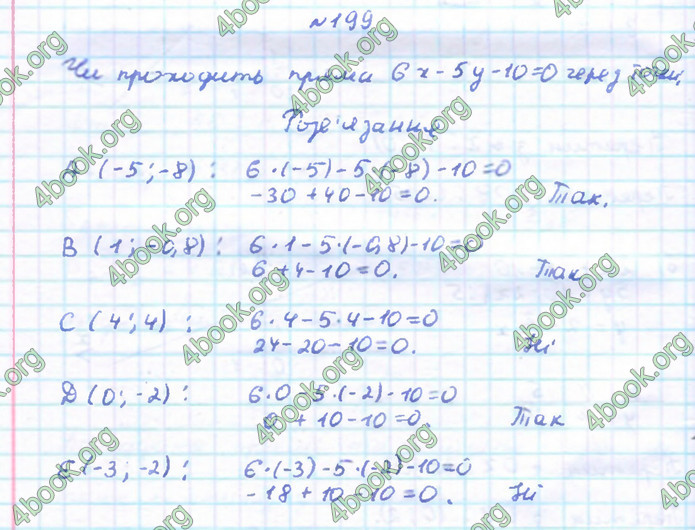 №199
Чи проходить пряма 6x-5y-10=0 через точки
Розв'язання
A (-5;-8): 6·(-5)-5·(-8)-10=0
-30+40-10=0. Так.
B (1;-0,8): 6·1-5·(-0,8)-10=0
6+4-10=0. Так
C (4;4): 6·4-5·4-10=0
24-20-10=0. Ні
D (0;-2): 6·0-5·(-2)-10=0
0+10-10=0. Так
E (-3;-2): 6·(-3)-5·(-2)-10=0
-18+10-10=0. Ні
4book.org